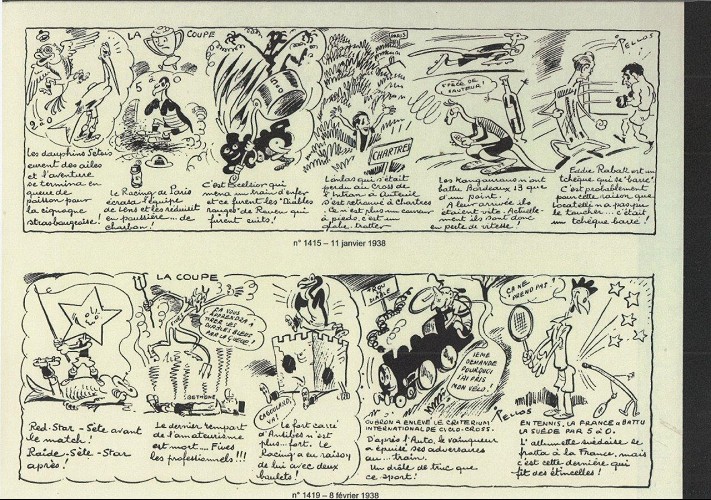 LA COUPE
Les dauphins Sétois
eurent des ailes
et l'aventure
se termina en
queue de
poisson pour
la cigogne
strasbourgeoise!
Le Racing de Paris
écrasa l'équipe
de Lens et les réduisit
en poussière... de
charbon!
C'est Excelsior qui
mena un train d'enfer
et ce furent les "Diables
rouges" de Rouen qui
furent cuits!
PARIS
CHARTRES
qui s'était
perdu au Cross de
à Auteuil
s'est retrouvé à Chartres
Ce n'est plus un coureur
à pieds. c'est un
globe-trotter
SAUTEUR!
Les Kangourous n'ont
battu Bordeaux 13 que
d'un point.
A leur arrivée ils
étaient vite. Actuelle-
ment ils sont donc
en perte de vitesse!
PELLOS
Eddie Rabak est un
tchèque qui se "barre"!
C'est probablement
pour cette raison que
Locatelli n'a pas pu
le toucher... c'était
un tchèque barré!
n° 1415 – 11 janvier 1938
LA COUPE
Red-Star - Sète avant
le match!
Raide-Sète-Star
après!
ÇA VOUS
APPRENDRA À
TIRER LES
DIABLES BLEUS
PAR LA QUEUE!
BETHUNE
Le dernier rempart
de l'amateurisme
est mort... Fives
les professionnels!!!
Le fort carré
d'Antibes n'est
plus... fort. Le
Racing a eu raison
de lui avec deux
boulets!
JEME
DEMANDE
POURQUOI
J'AI PRIS
MON VÉLO!
OUBRON A ENLEVÉ LE CRITERIUM
INTERNATIONAL DE CYCLO-CROSS.
D'après l'Auto, le vainqueur
a épuisé ses adversaires
au... train.
Un drôle de truc que
ce sport!
PELLOS
ÇA NE
PREND PAS!
EN TENNIS, LA FRANCE A BATTU
LA SUÈDE PAR 5 À 0.
L'allumette suédoise se
frotta à la France, mais
c'est cette dernière qui
fit des étincelles!
n° 1419 – 8 février 1938